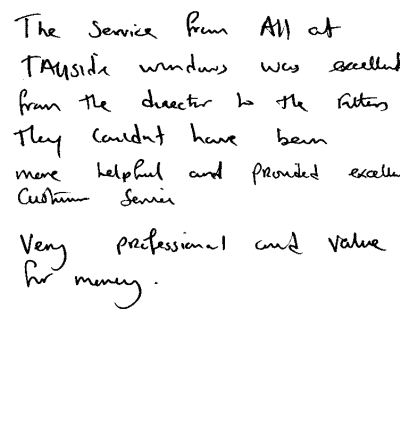 The Service from All at
TAYside windows was excellent
from the director to the Fitters
They Couldn't have been
more helpful and provided excelle
Customer Service
Very professional and value
for money.